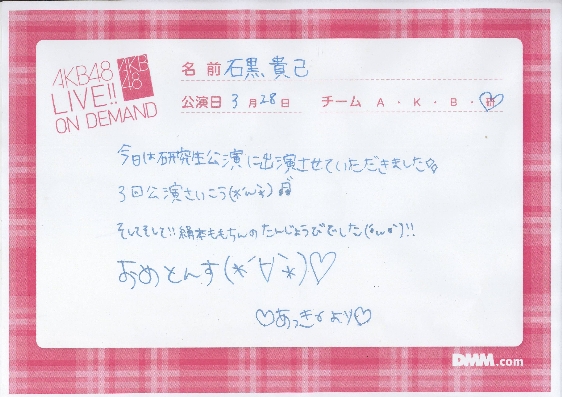 AKB48
LIVE!!
ON DEMAND
AKB
48
名前 石黒貴己
公演日 3月28日 チーム A・K・B・研
今日は研究生公演に出演させていただきました
3回公演さいこう(*´ω`*)
そしてそして!!絹本ももちんのたんじょうびでした(´ω`)!!
おめとんす(*´∀`*)♡
♡あっきーより♡
DMM.com